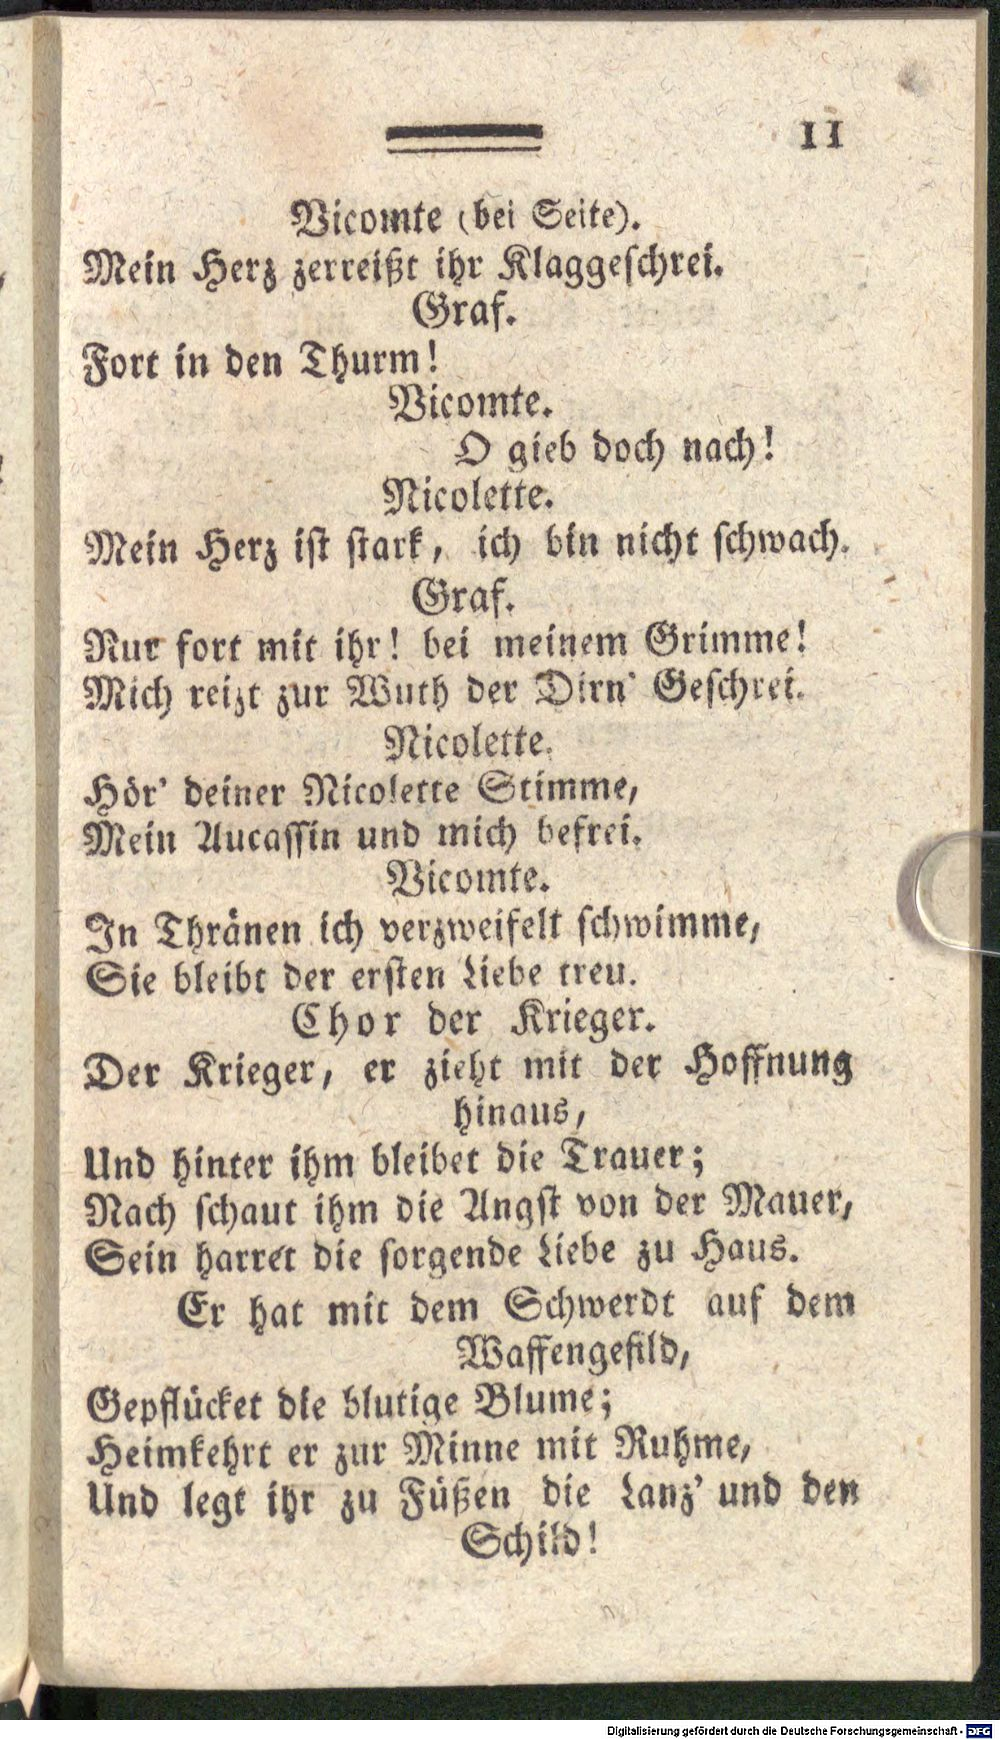 11
Vicomte (bei Seite).
Mein Herz zerreißt ihr Klaggeschrei.
Graf.
Fort in den Thurm!
Vicomte.
O gieb doch nach!
Nicolette.
Mein Herz ist stark, ich bin nicht schwach.
Graf.
Nur fort mit ihr! bei meinem Grimme!
Mich reizt zur Wuth der Dirn' Geschrei.
Nicolette.
Hör' deiner Nicolette Stimme,
Mein Aucassin und mich befrei.
Vicomte.
In Thränen ich verzweifelt schwimme,
Sie bleibt der ersten Liebe treu.
Chor der Krieger.
Der Krieger, er zieht mit der Hoffnung
hinaus,
Und hinter ihm bleibet die Trauer;
Nach schaut ihm die Angst von der Mauer,
Sein harret die sorgende Liebe zu Haus.
Er hat mit dem Schwerdt auf dem
Waffengefild,
Gepflücket die blutige Blume;
Heimkehrt er zur Minne mit Ruhme,
Und legt ihr zu Füßen die Lanz' und den
Schild!
Digitalisierung gefördert durch die Deutsche Forschungsgemeinschaft - DFG